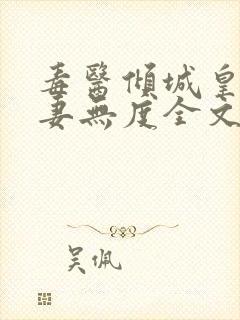 毒醫傾城皇
妻無度全文
吴佩